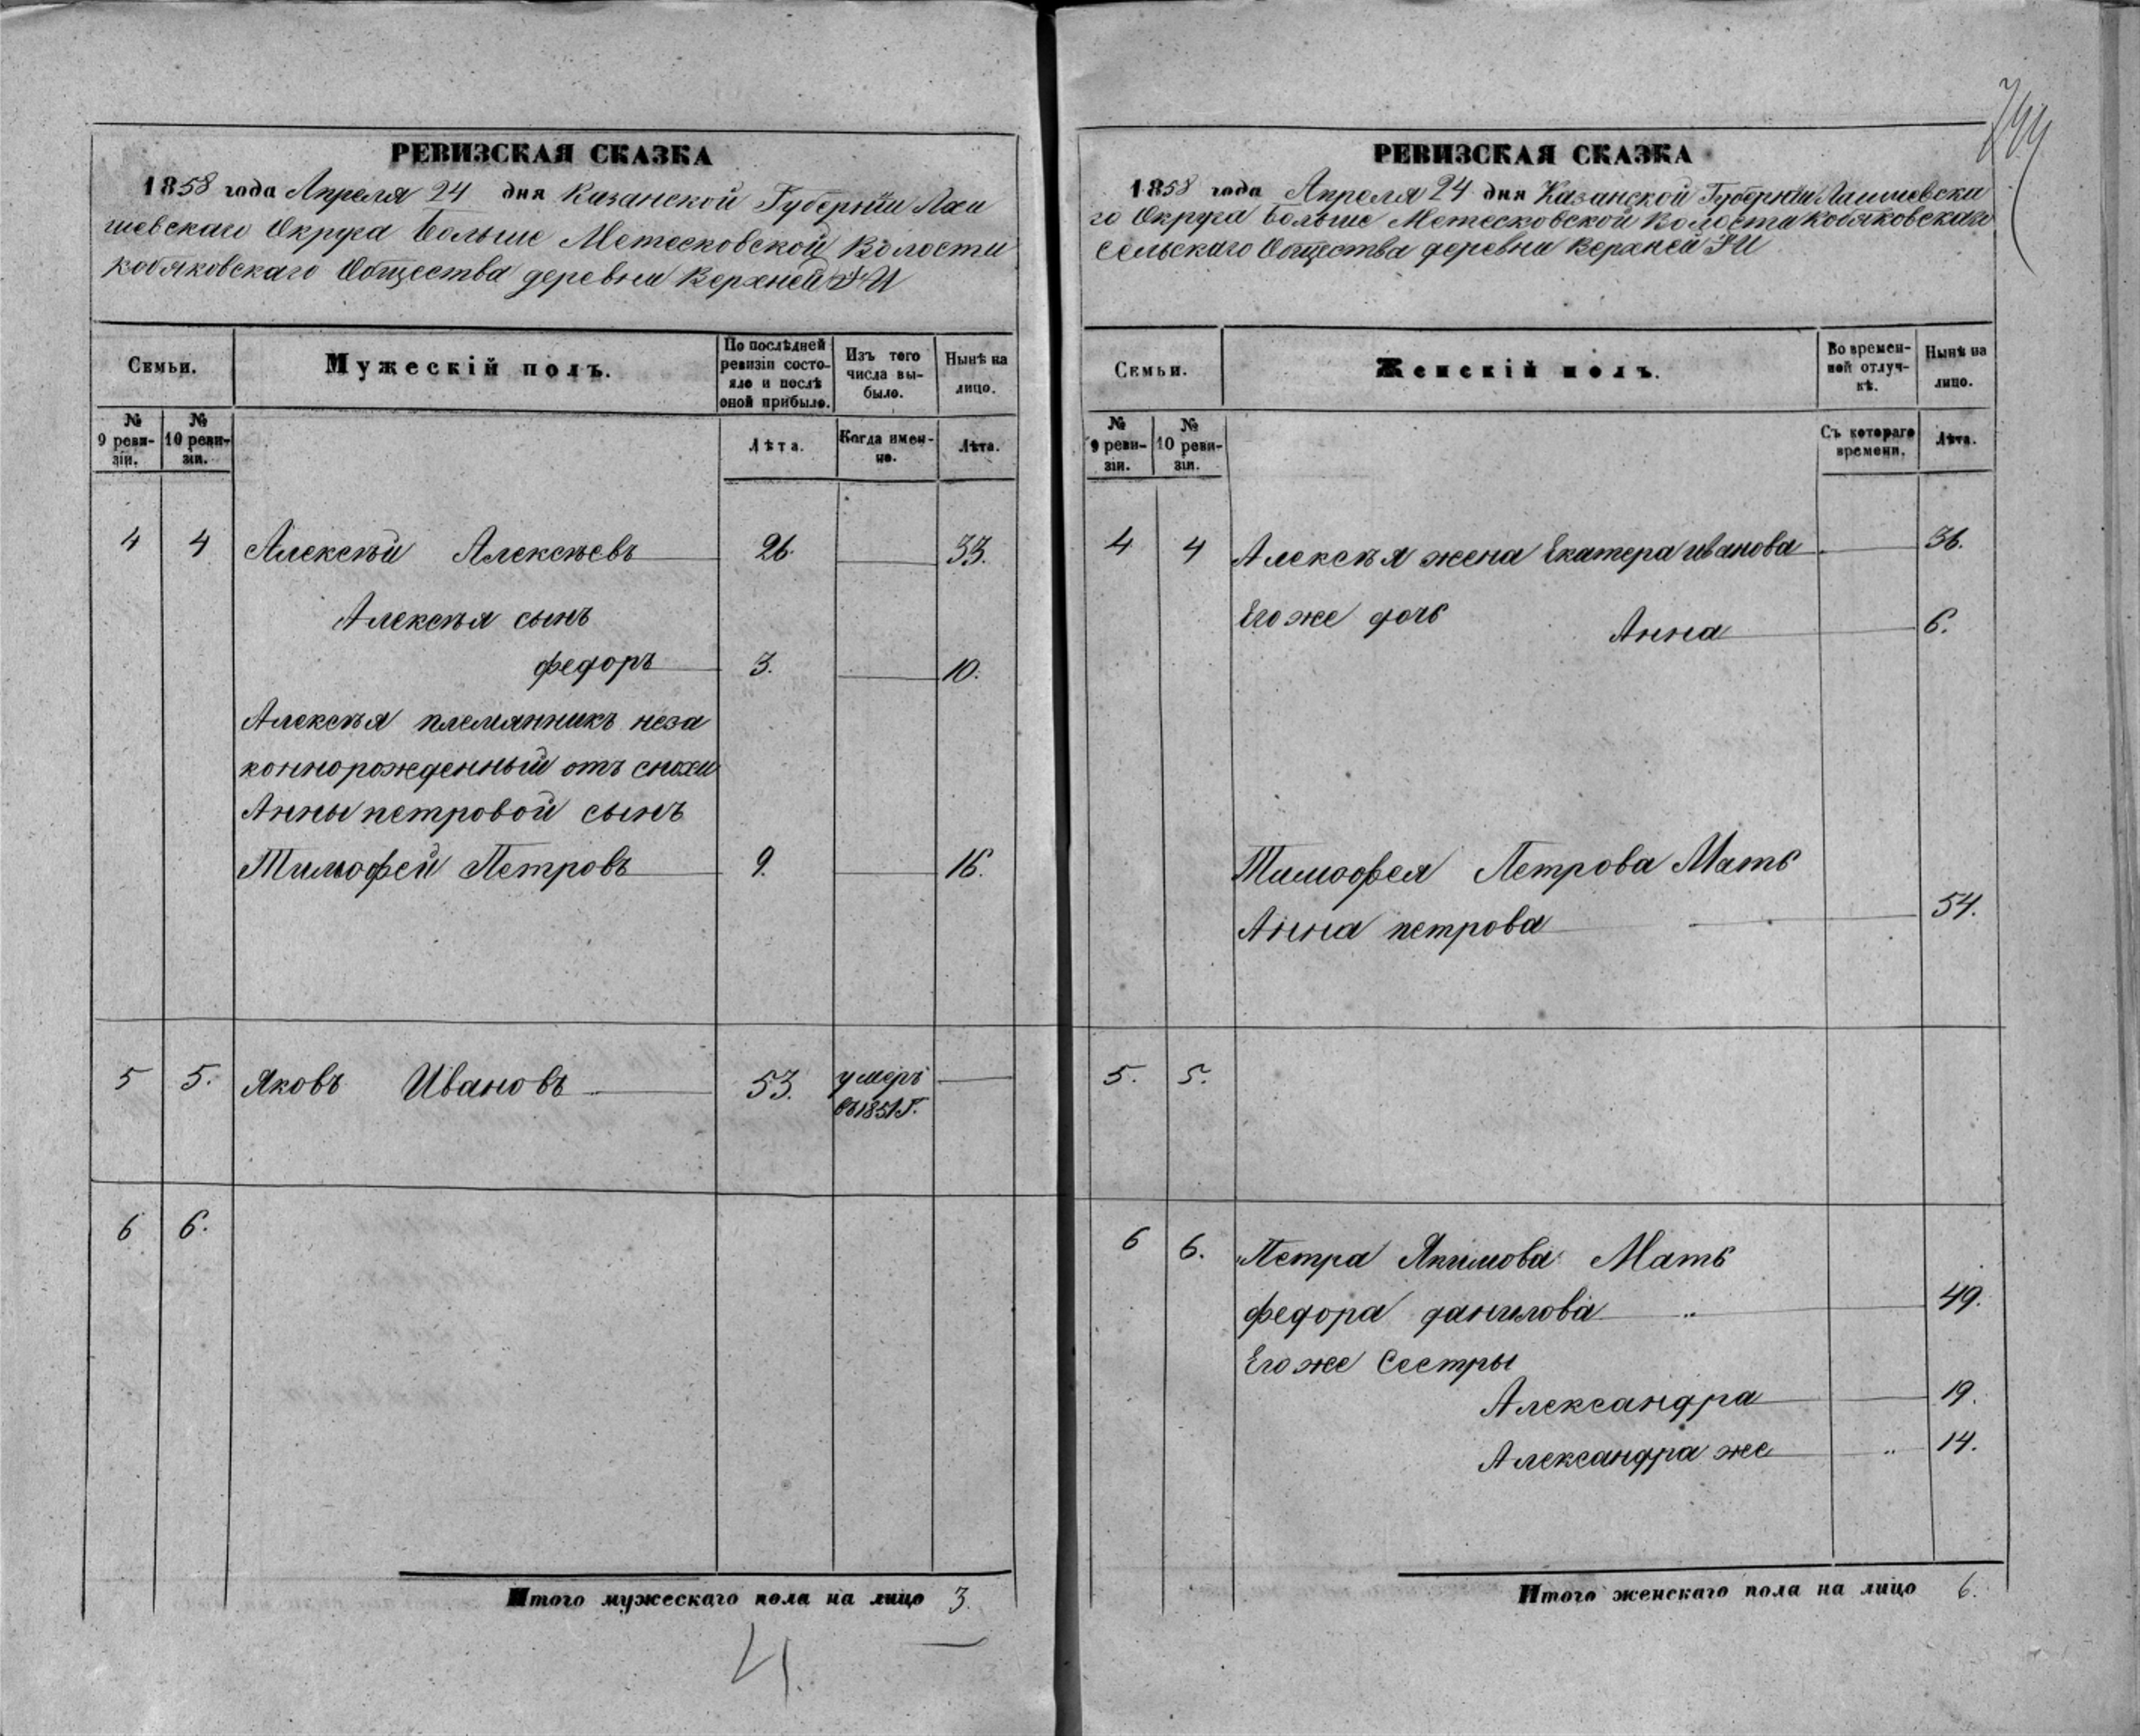 РЕВИЗСКАЯ СКАЗКА
1858 года Апреля 24 дня Казанской Губернiи Лаи
шевскаго Округа больше Метесковской Волости
Кобяковскаго Общества деревни Верхней
Семьи.
Мужескiй полъ.
По послѣдней ревизiи состо-
яло и послѣ оной прибыло.
Изъ того числа вы-
было.
Нынѣ на лицо.
№ 9 реви-
зiи.
№ 10 реви-
зiи.
Лѣта.
Когда имен-
но.
Лѣта.
4 4 Алексѣй Алексѣевъ 26. 33.
Алексѣя сынъ
федоръ 3. 10.
Алексѣя племянникъ неза
коннорожденный отъ снохи
Анны петровой сынъ
Тимофей Петровъ 9. 16.
5 5. Яковъ Ивановъ 53. умеръ
въ 1851 г.
6 6.
Итого мужескаго пола на лицо 3.
4.
РЕВИЗСКАЯ СКАЗКА
1858 года Апреля 24 дня Казанской Губернiи Лаишевска
го Округа больше Метесковской Волости Кобяковскаго
Сельскаго Общества деревни Верхней
Семьи.
Женскiй полъ.
Во времен-
ной отлуч-
кѣ.
Нынѣ на лицо.
№ 9 реви-
зiи.
№ 10 реви-
зiи.
Съ котораго времени.
Лѣта.
4 4 Алексѣя жена Екатера иванова 36.
Его же дочь
Анна 6.
Тимофея Петрова Мать
Анна петрова 54.
5. 5.
6 6. Петра Якимова Мать
федора данилова 49.
Его же Сестры
Александра 19.
Александра же 14.
Итого женскаго пола на лицо 6.